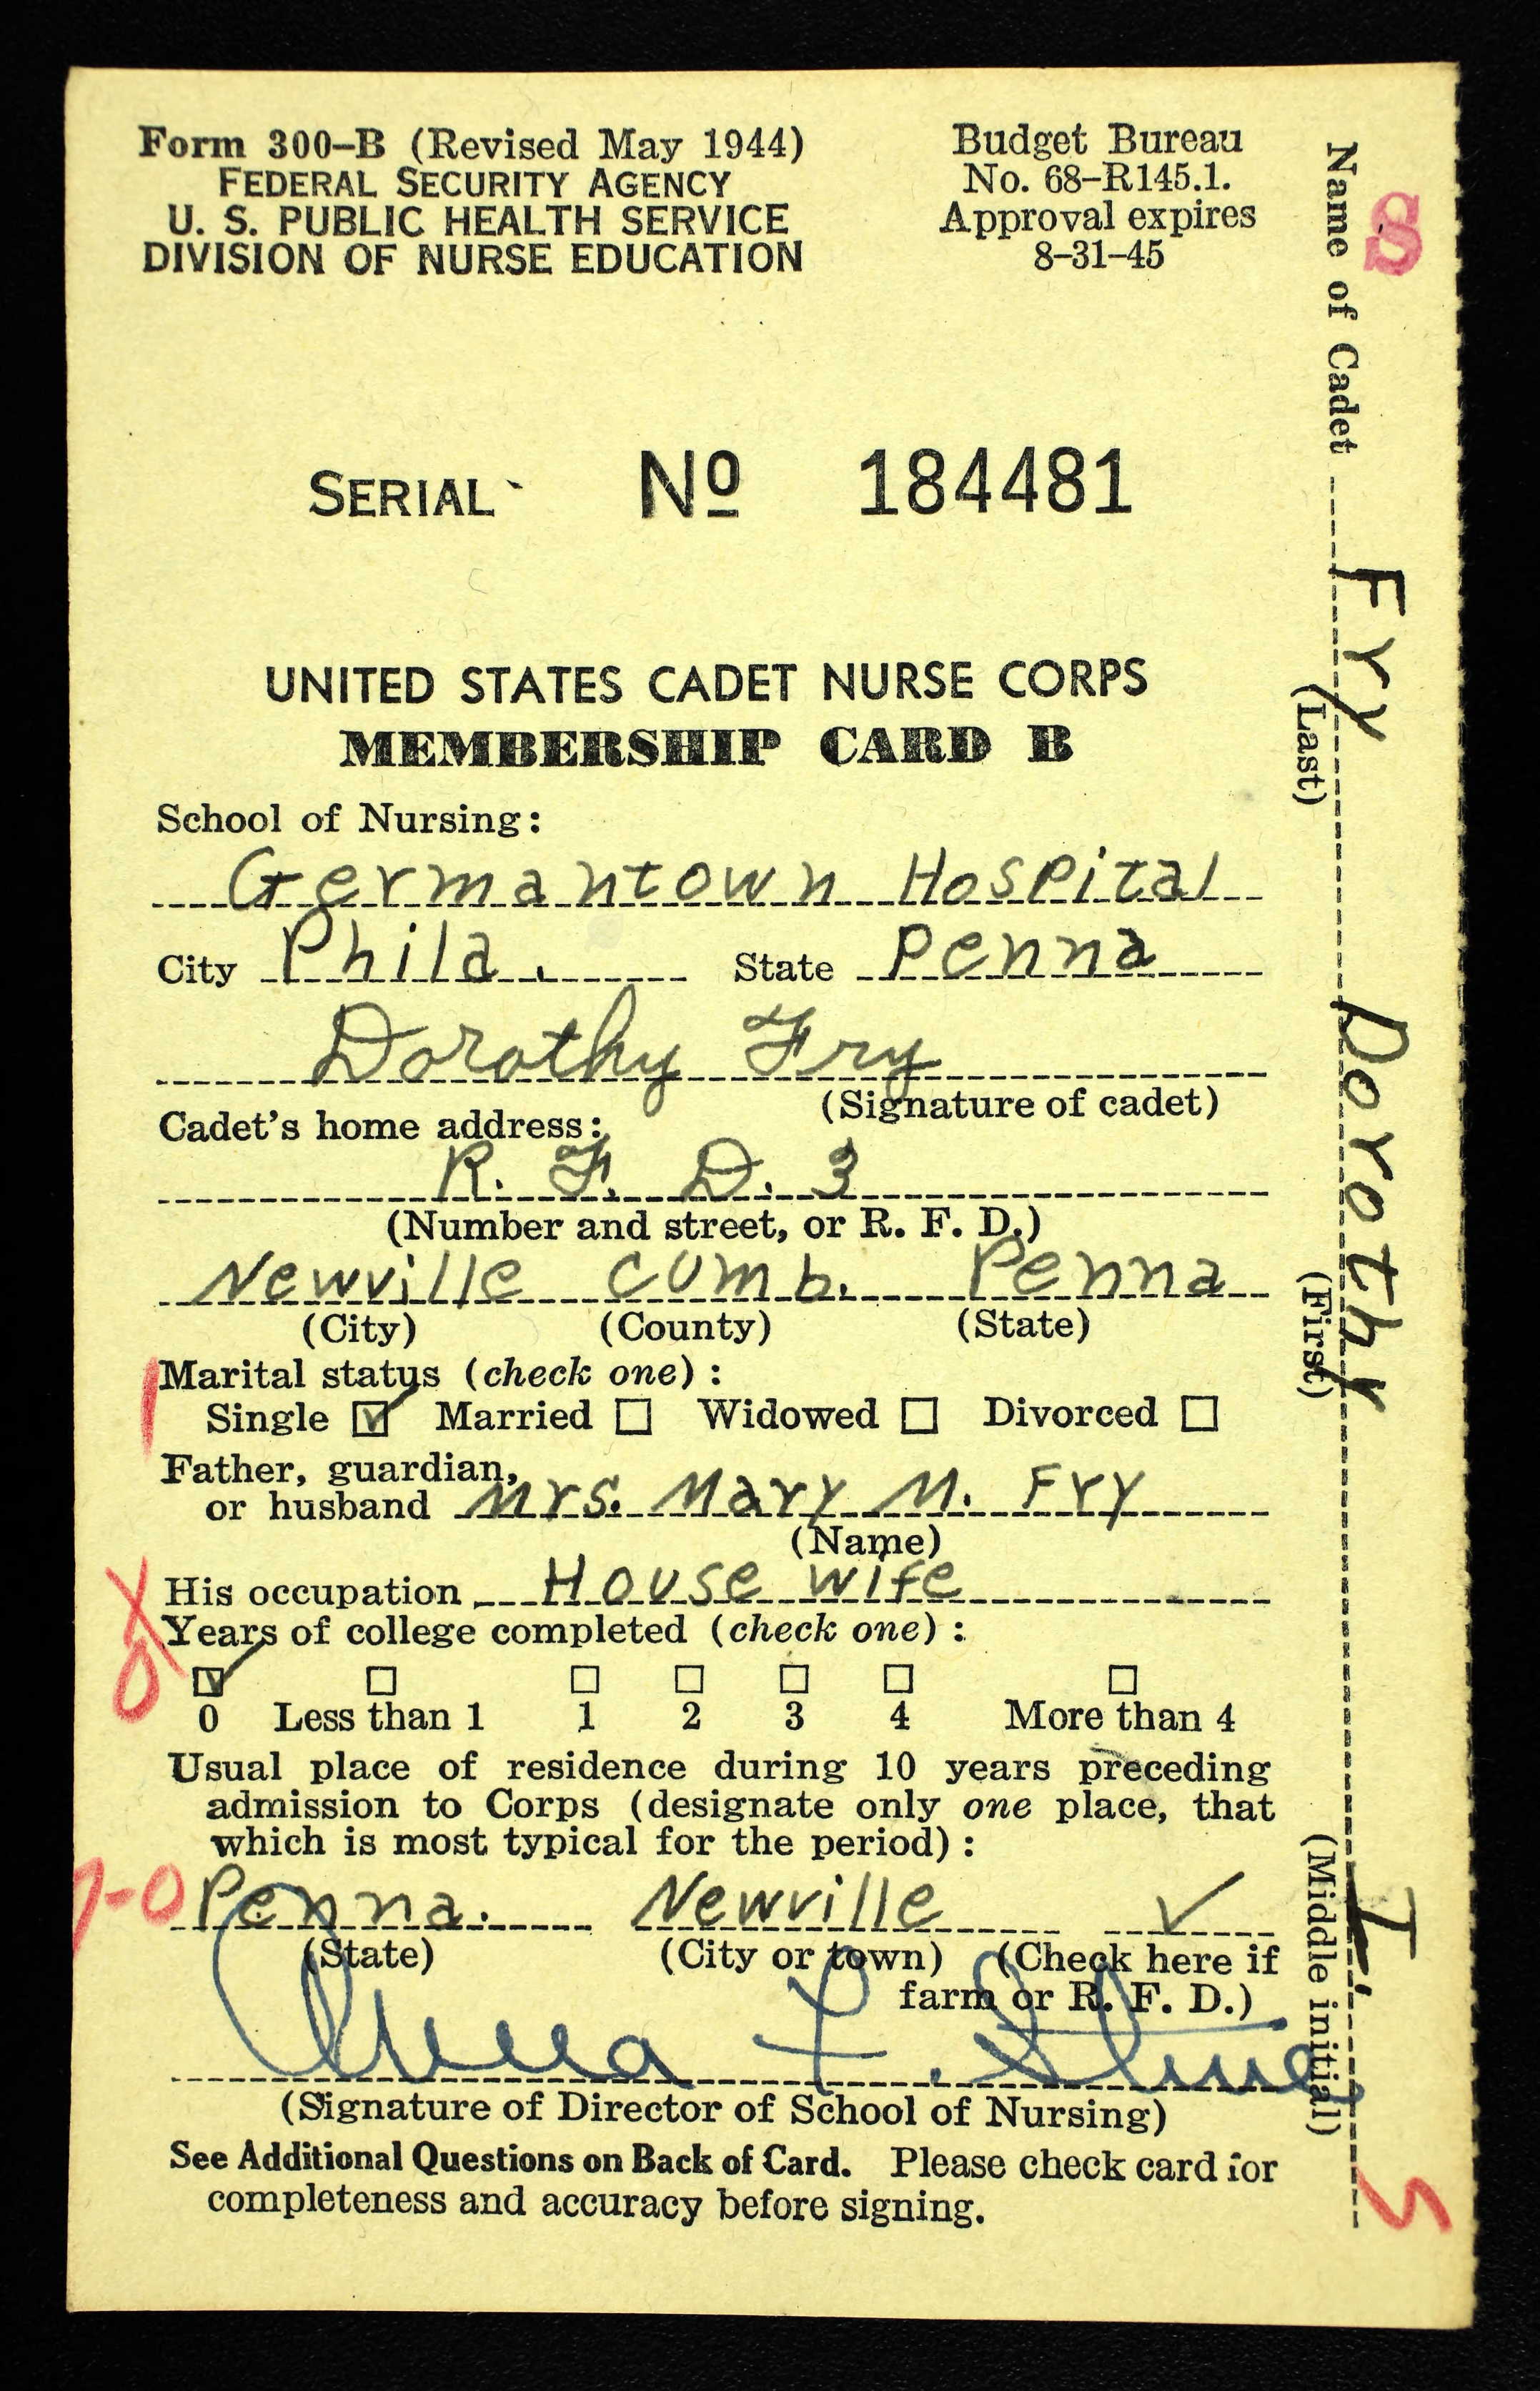 Form 300-B (Revised May 1944)
FEDERAL SECURITY AGENCY
U. S. PUBLIC HEALTH SERVICE
DIVISION OF NURSE EDUCATION
Budget Bureau
No. 68-R145.1.
Approval expires
8-31-45
SERIAL No 184481
UNITED STATES CADET NURSE CORPS
MEMBERSHIP CARD B
School of Nursing:
Germantown Hospital
City Phila. State Penna
Dorothy Fry
(Signature of cadet)
Cadet's home address:
R. F. D. 3
(Number and street, or R. F. D.)
Newville Cumb. Penna
(City) (County) (State)
Marital status (check one):
Single ☑ Married ☐ Widowed ☐ Divorced ☐
Father, guardian,
or husband Mrs. Mary M. Fry
(Name)
His occupation House wife
Years of college completed (check one):
☑ ☐ ☐ ☐ ☐ ☐ ☐
0 Less than 1 1 2 3 4 More than 4
Usual place of residence during 10 years preceding
admission to Corps (designate only one place, that
which is most typical for the period):
Penna. Newville ✓
(State) (City or town) (Check here if
farm or R. F. D.)
(Signature of Director of School of Nursing)
See Additional Questions on Back of Card. Please check card for
completeness and accuracy before signing.
Name of Cadet Fry Dorothy I.
(Last) (First) (Middle initial)
S